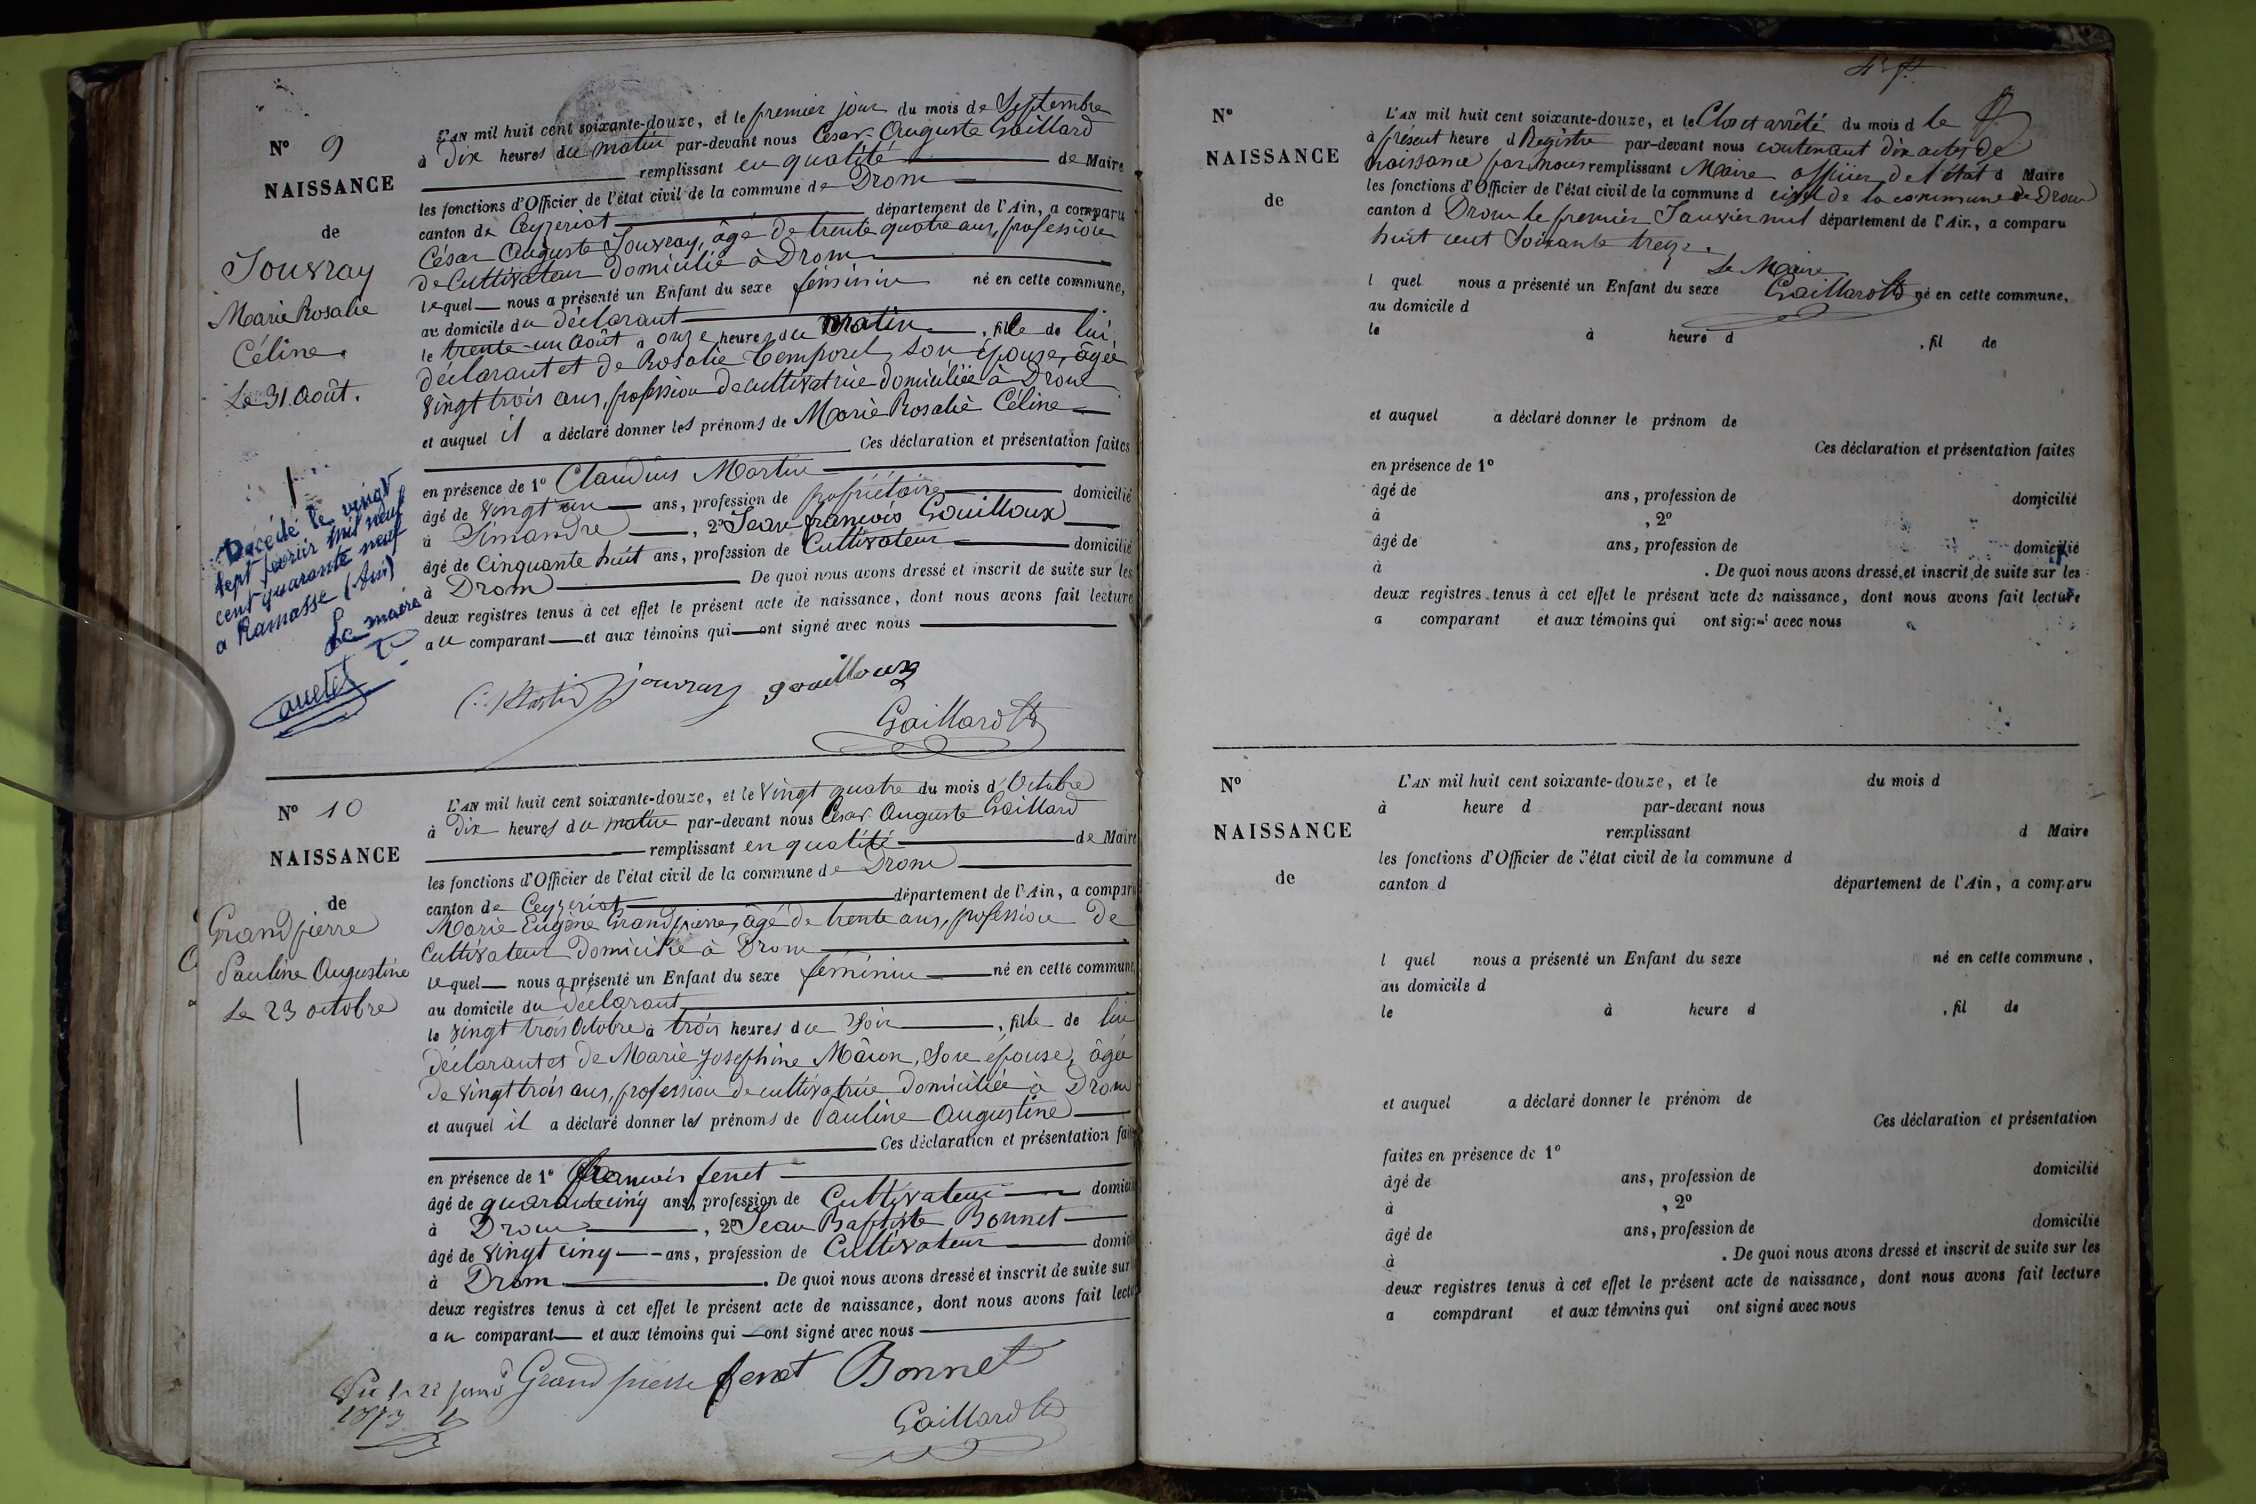 N° 9
NAISSANCE
de
Jouvray
Marie Rosalie
Céline.
Le 31 Août.
Décédé le vingt
sept février mil neuf
cent quarante neuf
a Ramasse (Ain)
Le maire
L'AN mil huit cent soixante-douze, et le premier jour du mois de Septembre
à Dix heures du matin par-devant nous César Auguste Gaillard
remplissant en qualité de Maire
les fonctions d'Officier de l'état civil de la commune de Drom
canton de Ceyzeriat département de l'Ain, a comparu
César Auguste Jouvray, âgé de trente quatre ans, profession
de Cultivateur domicilié à Drom
lequel nous a présenté un Enfant du sexe féminin né en cette commune,
au domicile du déclarant
le trente-un Août à onze heures du matin, fille de lui,
déclarant et de Rosalie Temporel, son épouse, âgée
vingt trois ans, profession de cultivatrice domiciliée à Drom
et auquel il a déclaré donner les prénoms de Marie Rosalie Céline
Ces déclaration et présentation faites
en présence de 1° Claudius Martin
âgé de vingt un ans, profession de propriétaire domicilié
à Simandre, 2° Jean françois Gouilloux
âgé de Cinquante huit ans, profession de Cultivateur domicilié
à Drom De quoi nous avons dressé et inscrit de suite sur les
deux registres tenus à cet effet le présent acte de naissance, dont nous avons fait lecture
au comparant et aux témoins qui ont signé avec nous
C. Martin jouvray gouilloux
Gaillard
N° 10
NAISSANCE
de
Grandpierre
Pauline Augustine
Le 23 octobre
L'AN mil huit cent soixante-douze, et le vingt quatre du mois d'Octobre
à Dix heures du matin par-devant nous César Auguste Gaillard
remplissant en qualité de Maire
les fonctions d'Officier de l'état civil de la commune de Drom
canton de Ceyzeriat département de l'Ain, a comparu
Marie Eugène Grandpierre, âgé de trente ans, profession de
Cultivateur domicilié à Drom
lequel nous a présenté un Enfant du sexe féminin né en cette commune,
au domicile du déclarant
le vingt trois Octobre à trois heures du soir, fille de lui
déclarant et de Marie Josephine Mâcon, son épouse, âgée
de vingt trois ans, profession de cultivatrice domiciliée à Drom
et auquel il a déclaré donner les prénoms de Pauline Augustine
Ces déclaration et présentation faites
en présence de 1° françois fenet
âgé de quarante cinq ans, profession de Cultivateur domicilié
à Drom, 2° Jean Baptiste Bonnet
âgé de vingt cinq ans, profession de Cultivateur domicilié
à Drom. De quoi nous avons dressé et inscrit de suite sur
deux registres tenus à cet effet le présent acte de naissance, dont nous avons fait lecture
au comparant et aux témoins qui ont signé avec nous
Grandpierre fenet Bonnet
Vu le 22
1873
Gaillard
N°
NAISSANCE
de
L'AN mil huit cent soixante-douze, et le Clos et arrêté du mois d le
à présent heure d Registre par-devant nous contenant dix actes de
naissance par nous remplissant Maire officier de l'état d Maire
les fonctions d'Officier de l'état civil de la commune d civil de la commune de Drom
canton d Drom le premier Janvier mil département de l'Ain, a comparu
huit cent soixante treize.
Le Maire
l quel nous a présenté un Enfant du sexe Gaillard né en cette commune,
au domicile d
le à heure d , fil de
et auquel a déclaré donner le prénom de
Ces déclaration et présentation faites
en présence de 1°
âgé de ans, profession de domicilié
à , 2°
âgé de ans, profession de domicilié
à . De quoi nous avons dressé et inscrit de suite sur les
deux registres tenus à cet effet le présent acte de naissance, dont nous avons fait lecture
a comparant et aux témoins qui ont signé avec nous
N°
NAISSANCE
de
L'AN mil huit cent soixante-douze, et le du mois d
à heure d par-devant nous
remplissant d Maire
les fonctions d'Officier de l'état civil de la commune d
canton d département de l'Ain, a comparu
l quel nous a présenté un Enfant du sexe né en cette commune,
au domicile d
le à heure d , fil de
et auquel a déclaré donner le prénom de
Ces déclaration et présentation
faites en présence de 1°
âgé de ans, profession de domicilié
à , 2°
âgé de ans, profession de domicilié
à . De quoi nous avons dressé et inscrit de suite sur les
deux registres tenus à cet effet le présent acte de naissance, dont nous avons fait lecture
a comparant et aux témoins qui ont signé avec nous